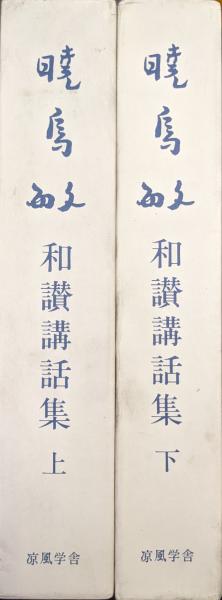 暁烏敏
和讃講話集 上
涼風学舎
暁烏敏
和讃講話集 下
涼風学舎